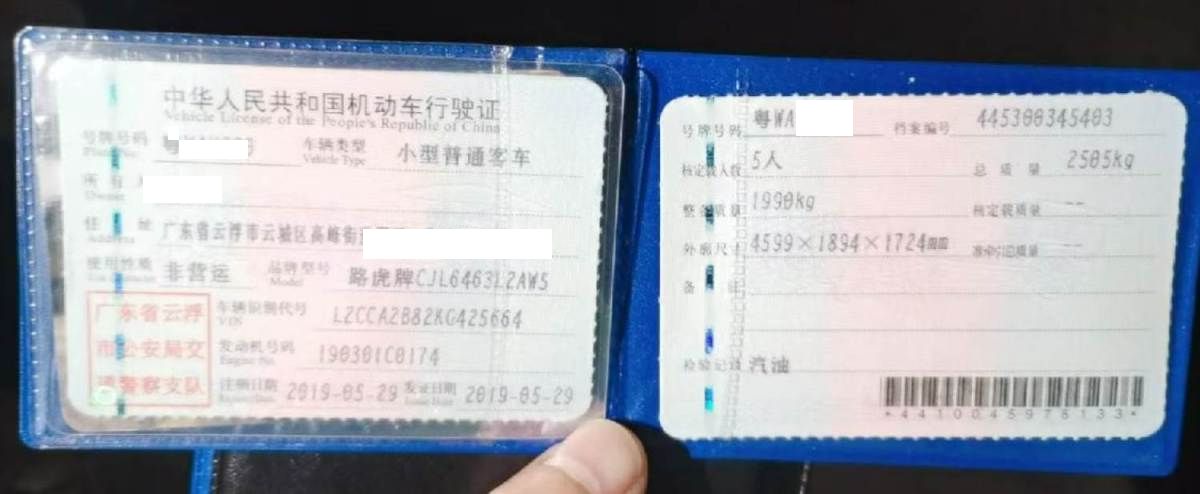 中华人民共和国机动车行驶证
Vehicle License of the People's Republic of China
号牌号码 粤 车辆类型 小型普通客车
Vehicle Type
所有人
Owner
住址 广东省云浮市云城区高峰街
Address
使用性质 非营运 品牌型号 路虎牌CJL6463L2AW5
Model
广东省云浮
市公安局交
通警察支队
车辆识别代号 L2CCA2B82KG425664
VIN
发动机号码 190301C0174
Engine No.
注册日期 2019-05-29 发证日期 2019-05-29
号牌号码 粤WA 档案编号 445300345403
核定载人数 5人 总质量 2505kg
整备质量 1990kg 核定载质量 --
外廓尺寸 4599×1894×1724mm 准牵引总质量 --
备注
检验记录 汽油
*4410045978133*